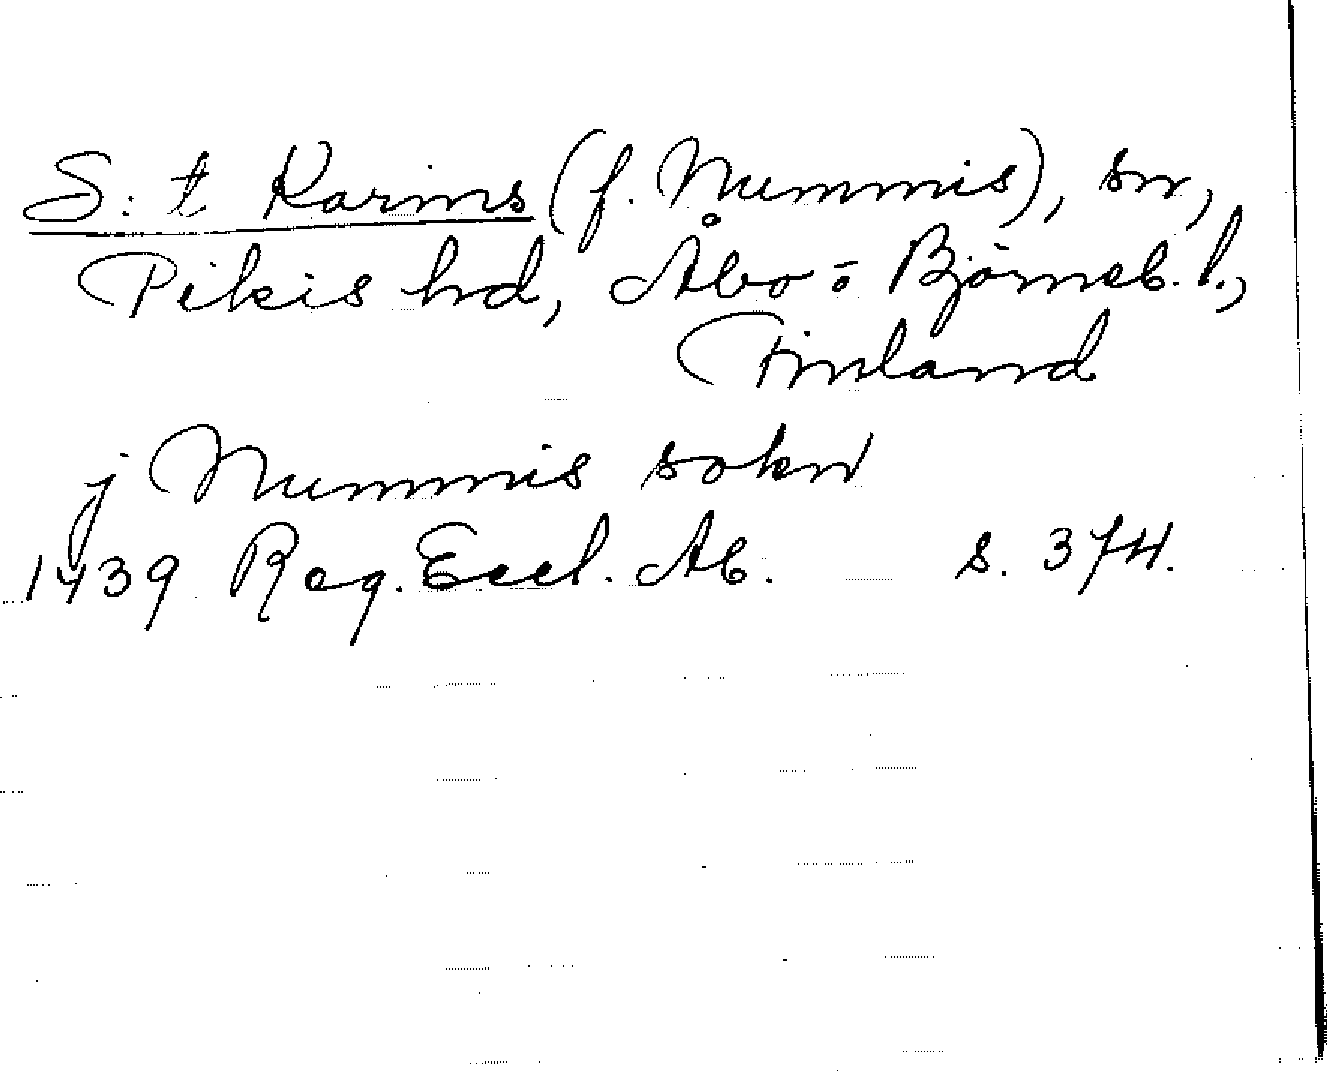 S:t Karins (f. Nummis), sn,
Pikis hd, Åbo- o Björneb. l.,
Finland
j Nummis sokn
1439 Reg. Eccl. Ab. s. 374.